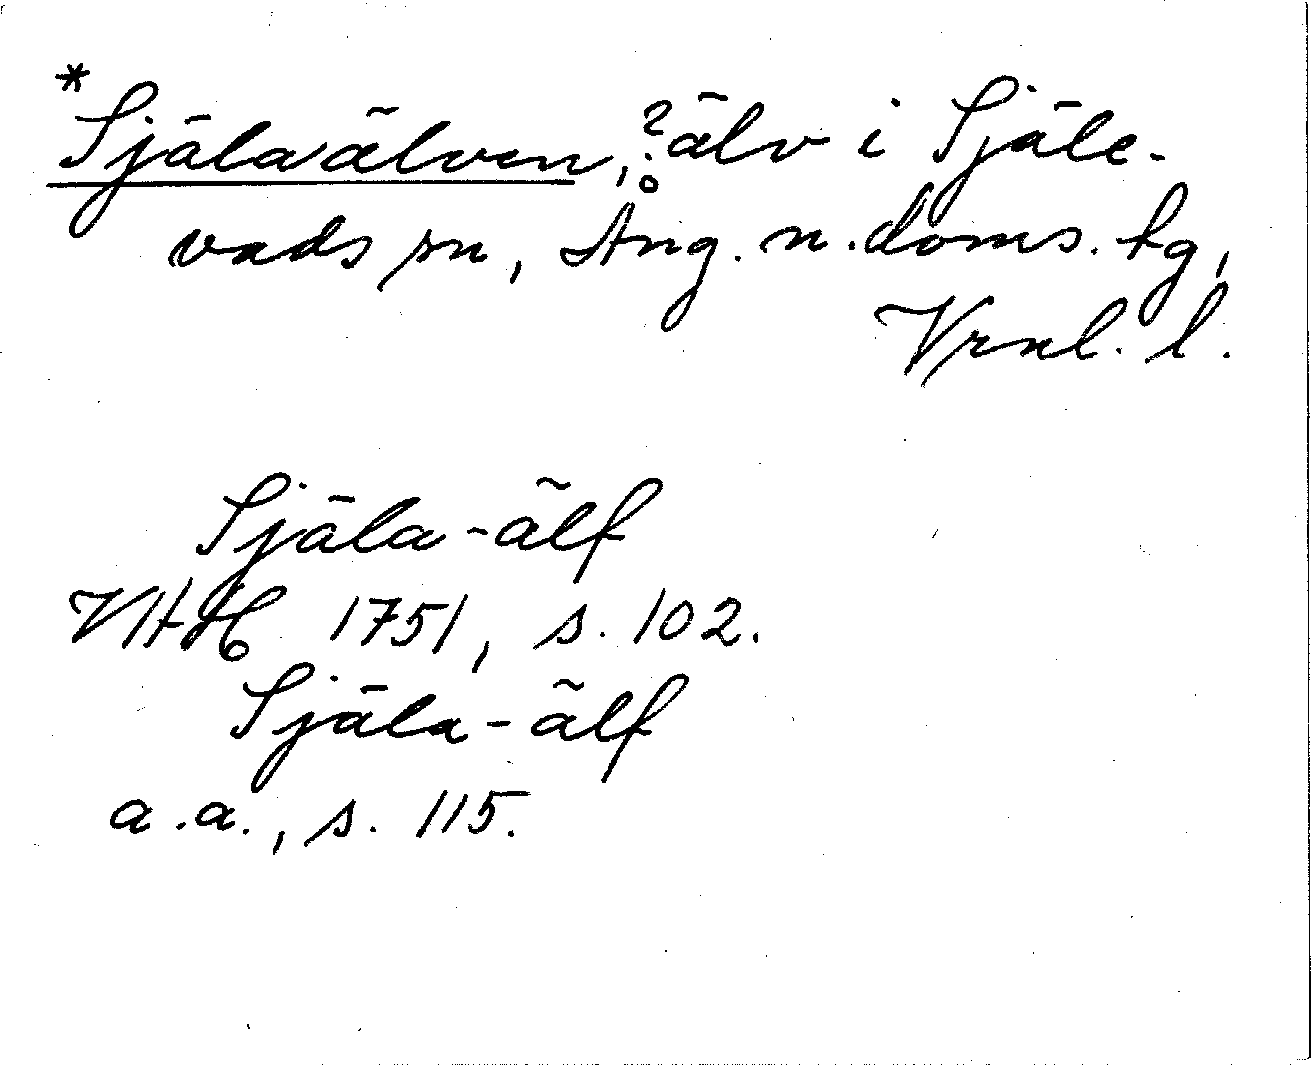 *Själaälven, ? älv i Själe-
vads sn, Ång. n. doms. tg,
Vrnl. l.
Själa-älf
VHAH 1751, s. 102.
Själa-älf
a.a., s. 115.